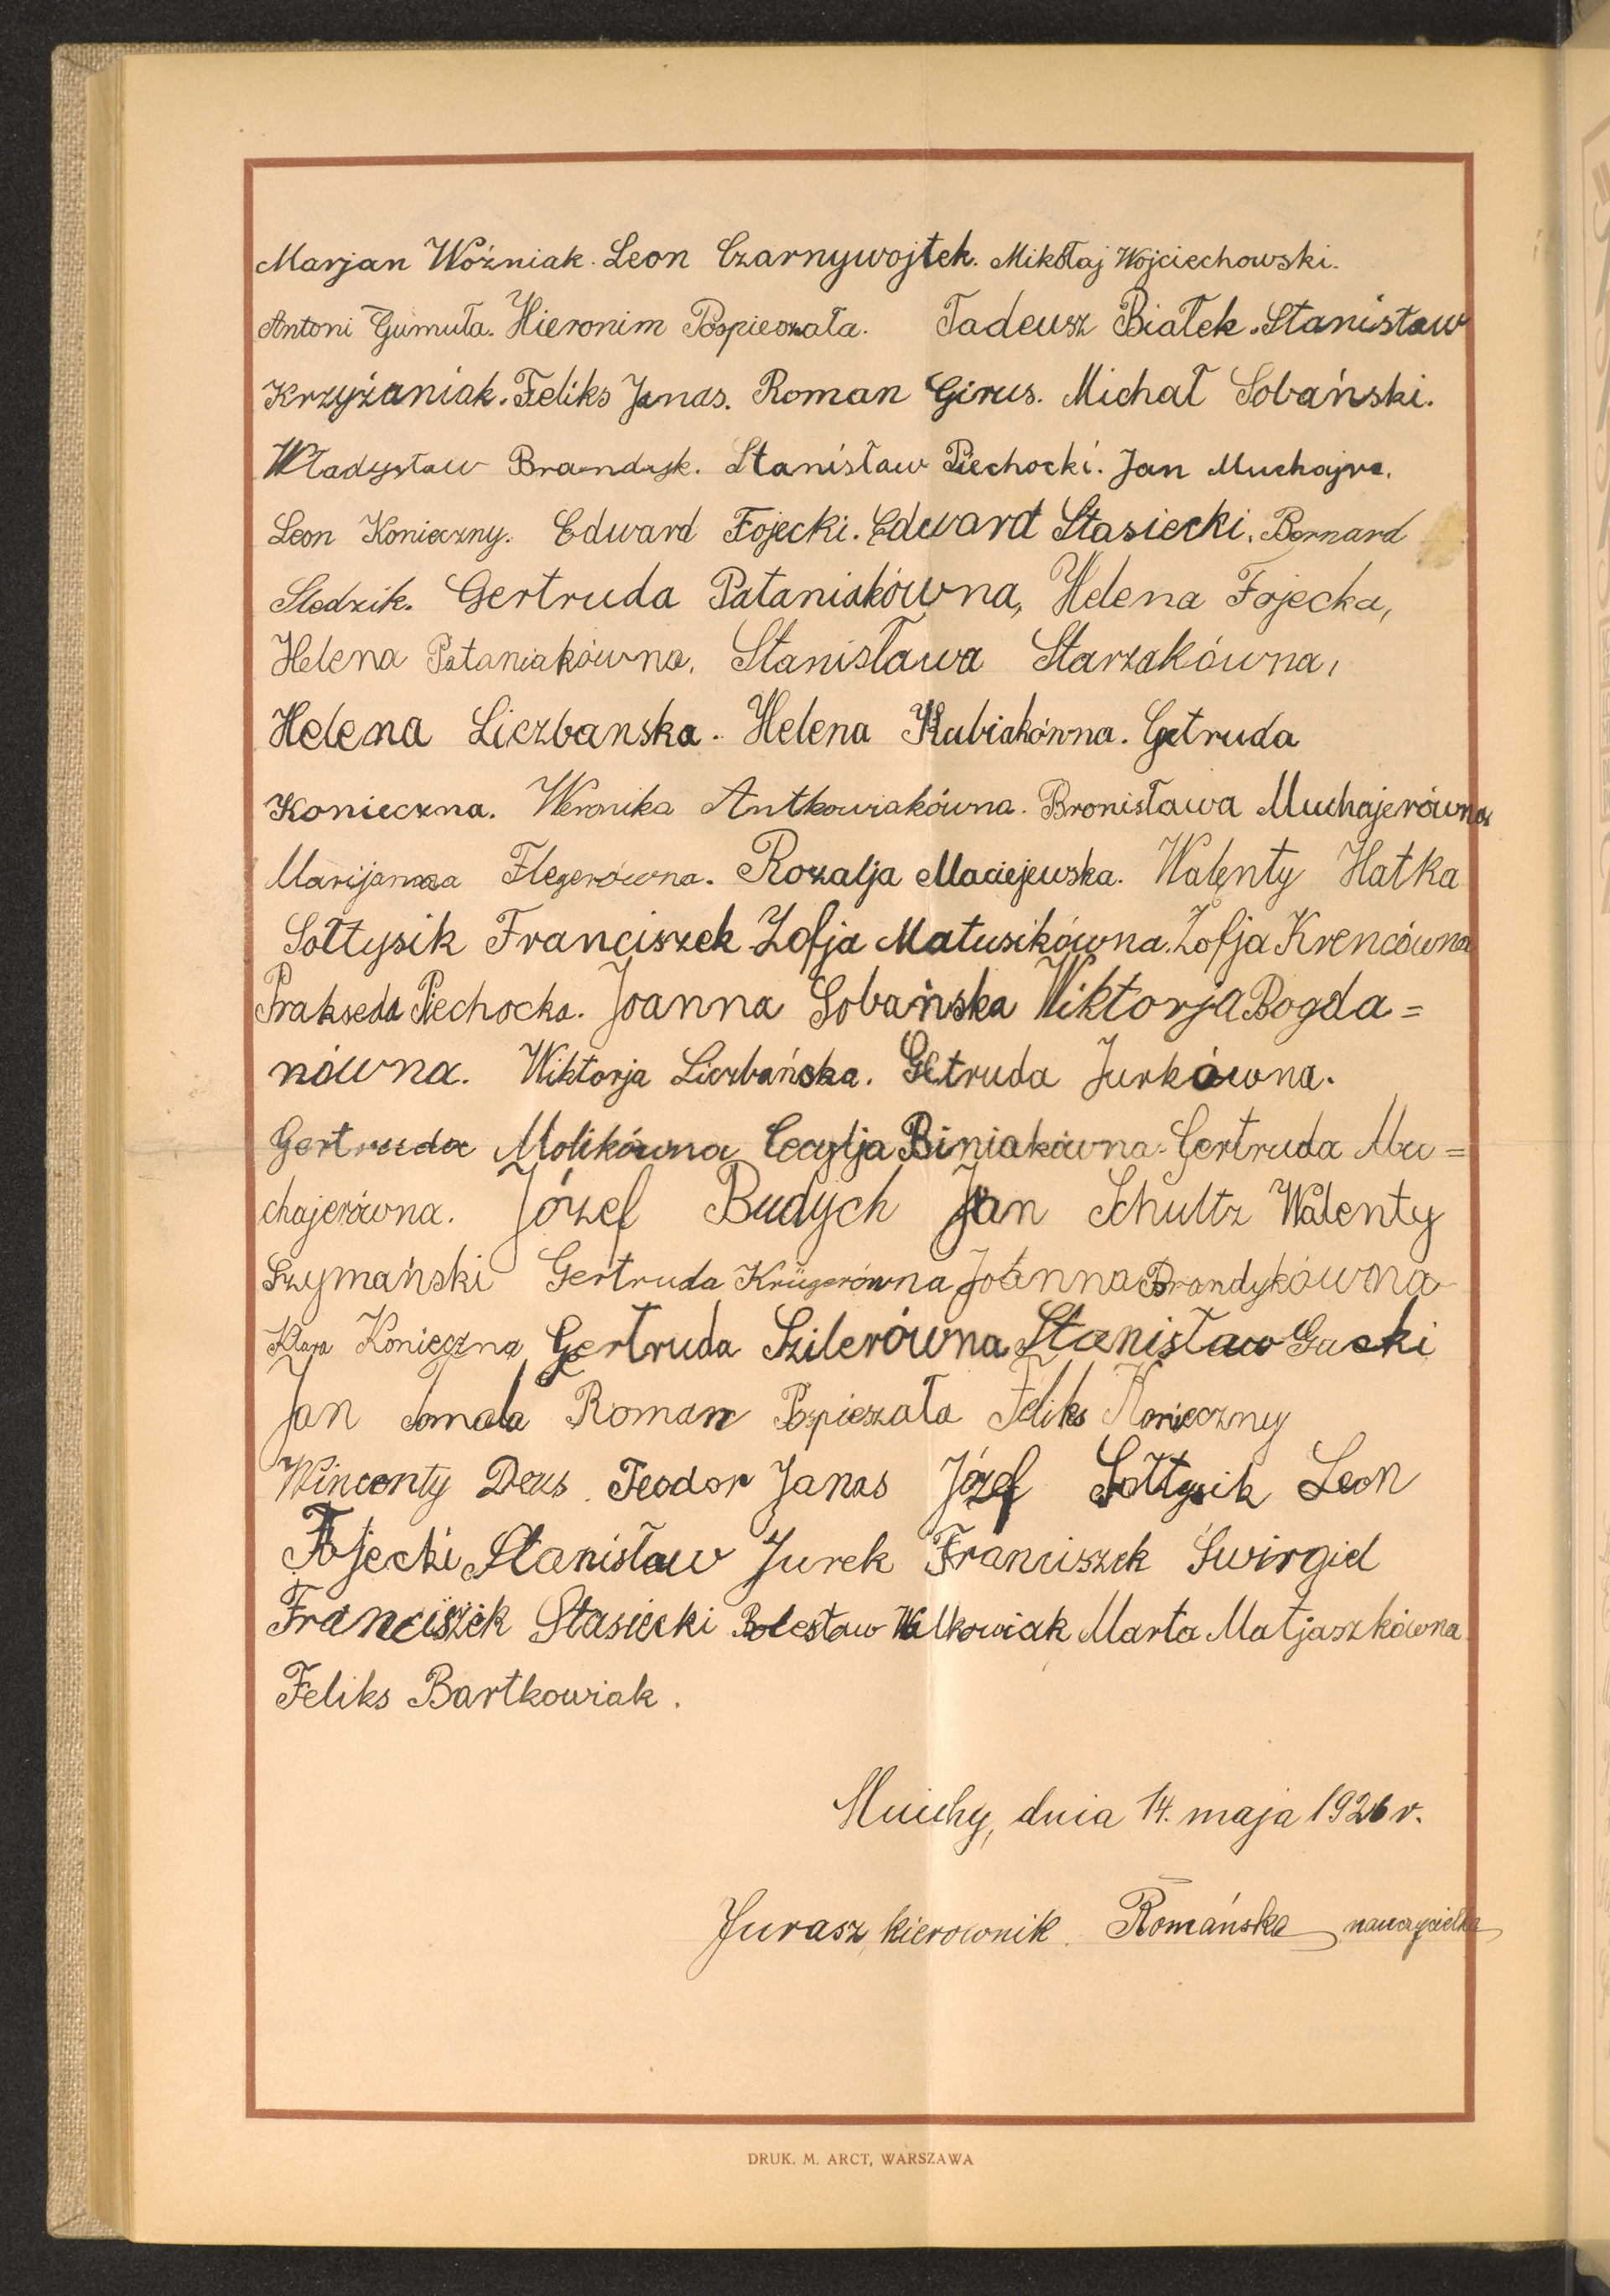 Marjan Woźniak. Leon Czarnywojtek. Mikołaj Wojciechowski.
Antoni Gumuła. Hieronim Pospieszała. Tadeusz Białek. Stanisław
Krzyżaniak. Feliks Janas. Roman Girus. Michał Sobański.
Władysław Brandyk. Stanisław Piechocki. Jan Muchajer.
Leon Konieczny. Edward Fojecki. Edward Stasiecki. Bernard
Sledzik. Gertruda Pataniakówna, Helena Fojecka,
Helena Pataniakówna, Stanisława Starzakówna,
Helena Liczbanska. Helena Kubiakówna. Getruda
Konieczna. Weronika Antkowiakówna. Bronisława Muchajerówna
Marijanna Flegerówna. Rozalja Maciejewska. Walenty Hatka
Sołtysik Franciszek Zofja Matusikówna. Zofja Krencówna
Prakseda Piechocka. Joanna Sobańska Wiktorja Bogda=
nówna. Wiktorja Liczbańska. Getruda Jurkówna.
Gertruda Molikówna Cecylja Biniakówna. Gertruda Mu=
chajerówna. Józef Budych Jan Schultz Walenty
Szymański Gertruda Krügerówna Joanna Brandykówna
Klara Konieczna Gertruda Szilerówna Stanisław Gacki
Jan Roman Pospieszała Feliks Konieczny
Wincenty Deus Teodor Janas Józef Sołtysik Leon
Fojecki Stanisław Jurek Franciszek Swirgiel
Franciszek Stasiecki Bolesław Walkowiak Marta Matjaszkówna
Feliks Bartkowiak.
Muchy, dnia 14. maja 1926 r.
Jurasz, kierownik. Romańska nauczycielka
DRUK. M. ARCT, WARSZAWA